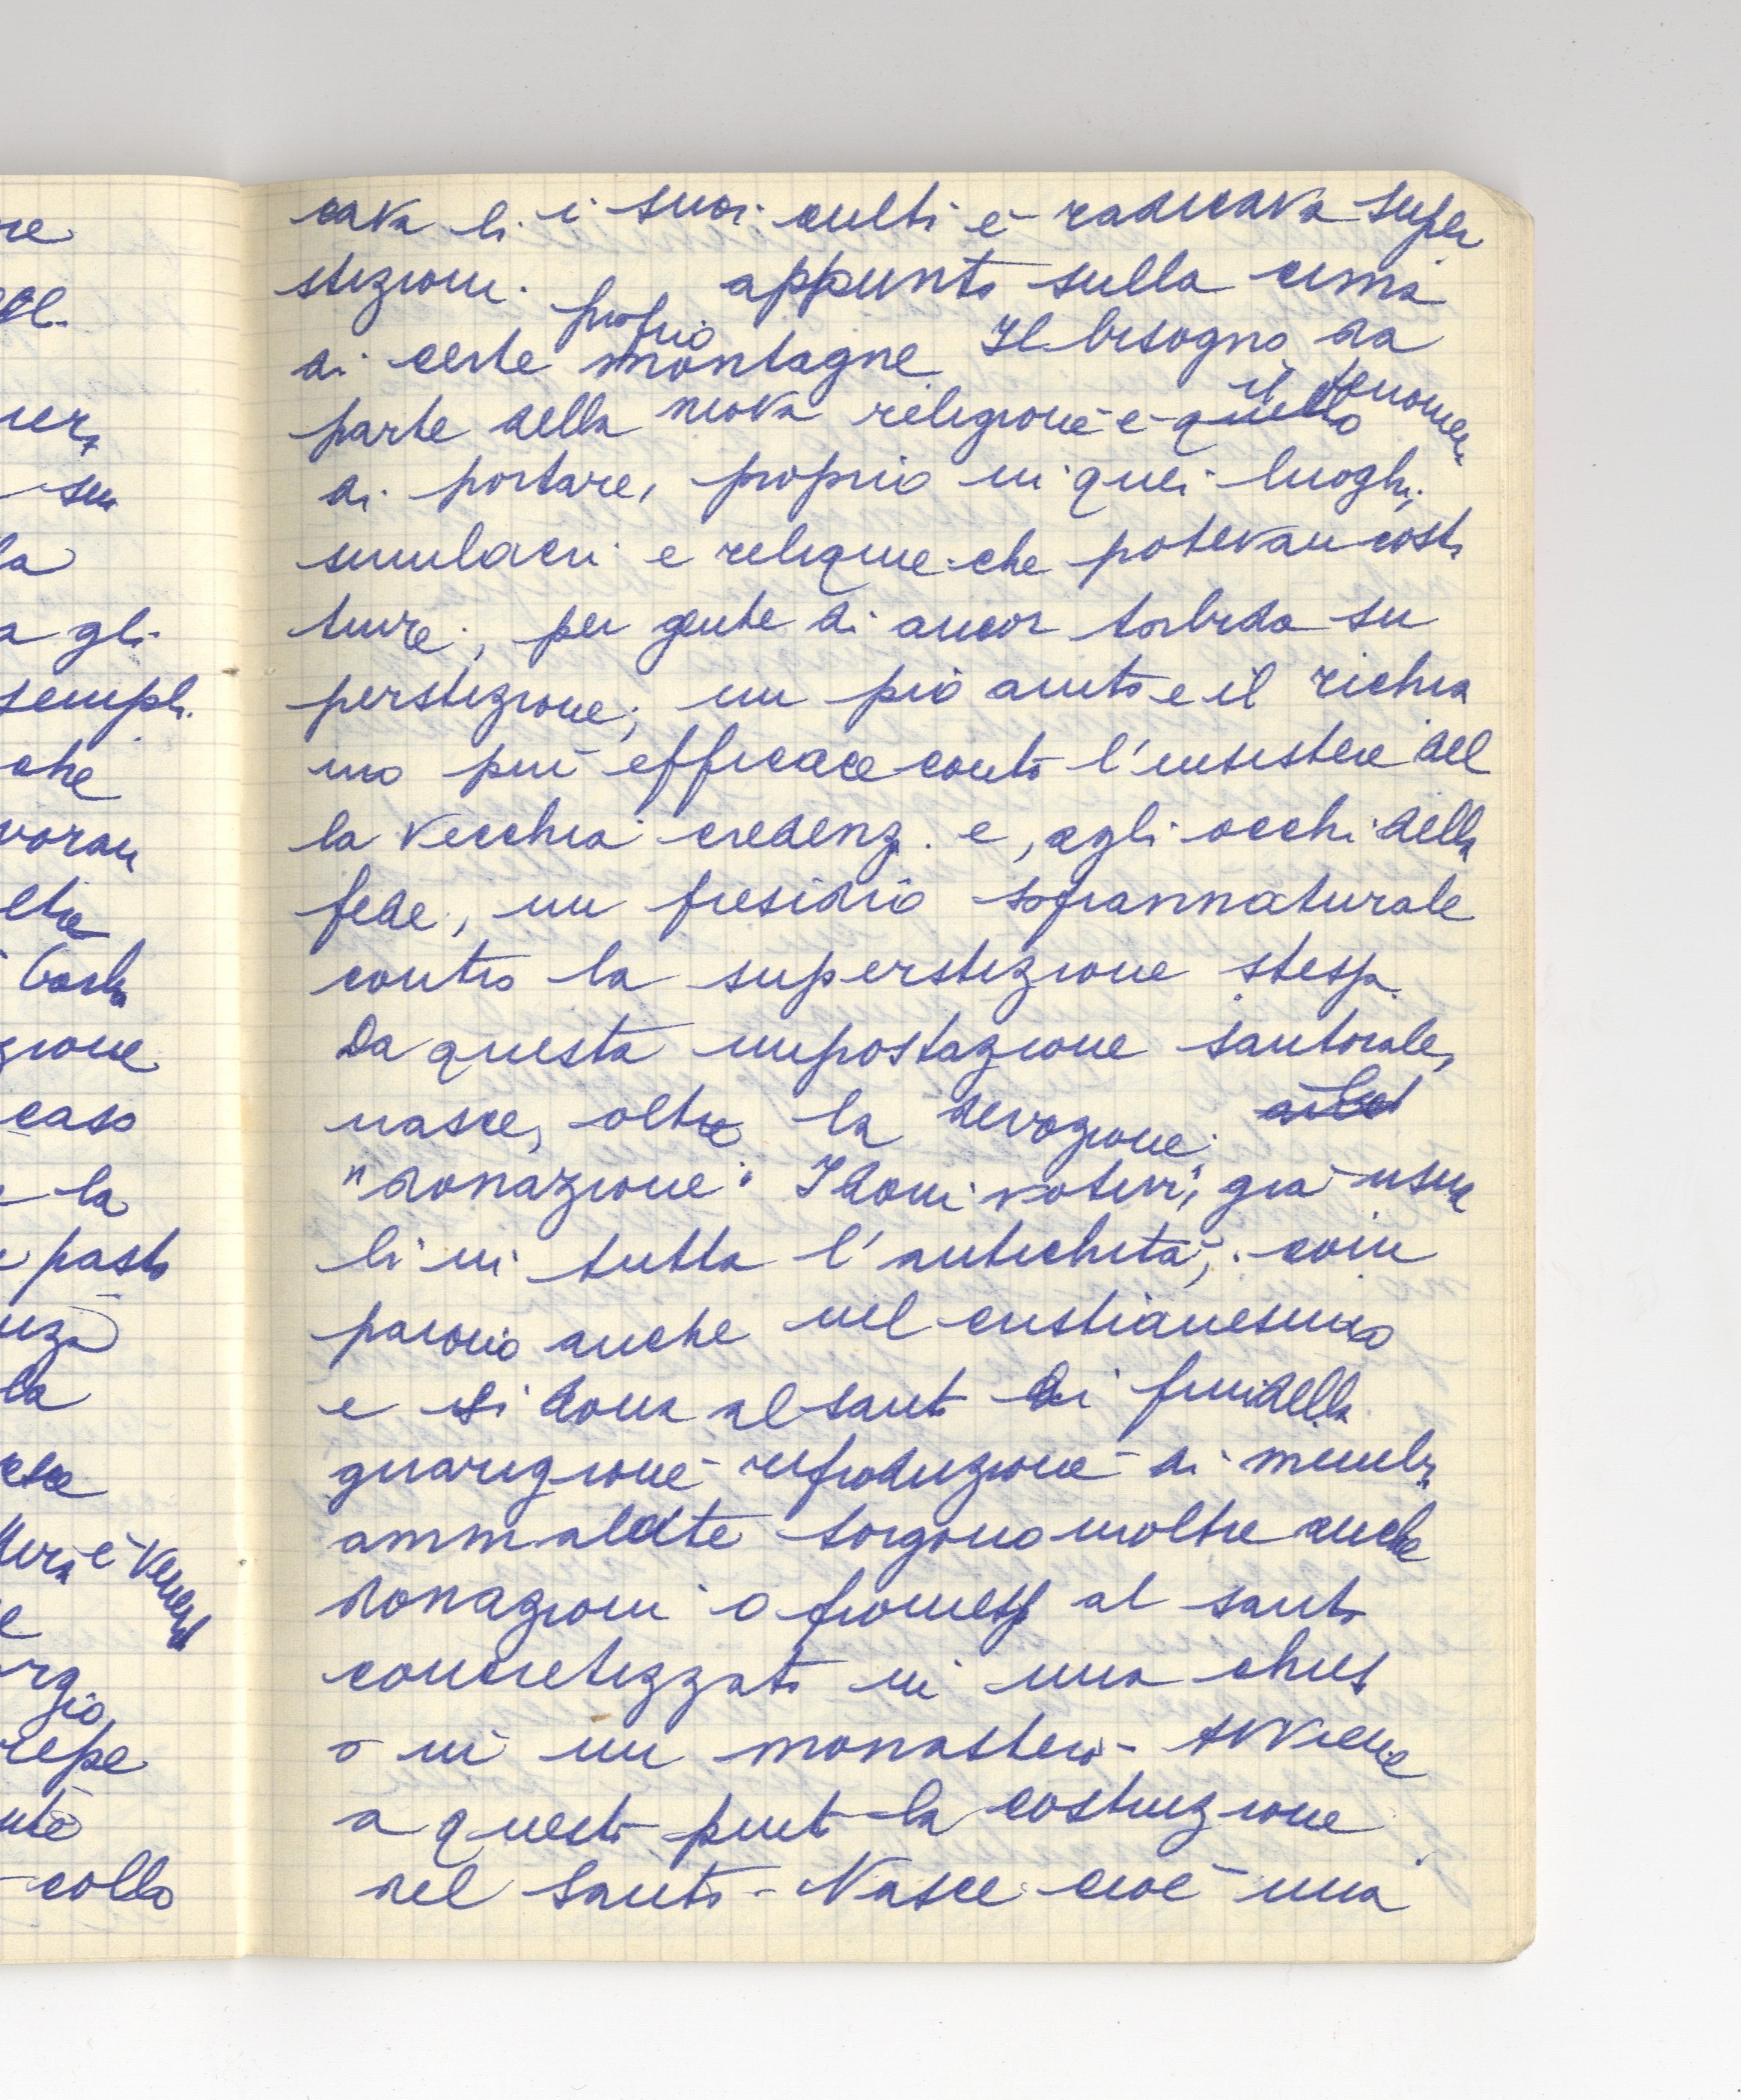 re
ol.
ier,
su
la
a gli
sempli.
che
voran
etre
Carlo
gione
caso
e la
e pasto
nza
la
esce
Venerd
e
rgio
repe
nte
collo
cava lì i suoi culti e radicava super
stizioni. appunto sulla cima
proprio
di certe montagne. Il bisogno da
il fenomeno
parte della nuova religione è quello
di portare, proprio in quei luoghi,
simulacri e reliquie che potevan costi
tuire, per gente di ancor torbida su
perstizione, un pio aiuto e il richia
mo più efficace contro l'insistere del
la vecchia credenz. e, agli occhi della
fede, un presidio soprannaturale
contro la superstizione stessa.
Da questa impostazione santorale,
nasce, oltre la devozione,
"donazione". I doni votivi, già usua
li in tutta l'antichità, com
paiono anche nel cristianesimo
e si dona al santo di fini della
guarigione riproduzione di membra
ammalate sorgono inoltre anche
donazioni o promesse al santo
concretizzato in una chiesa
o in un monastero - Avviene
a questo punto la costruzione
del Santo - Nasce cioè una